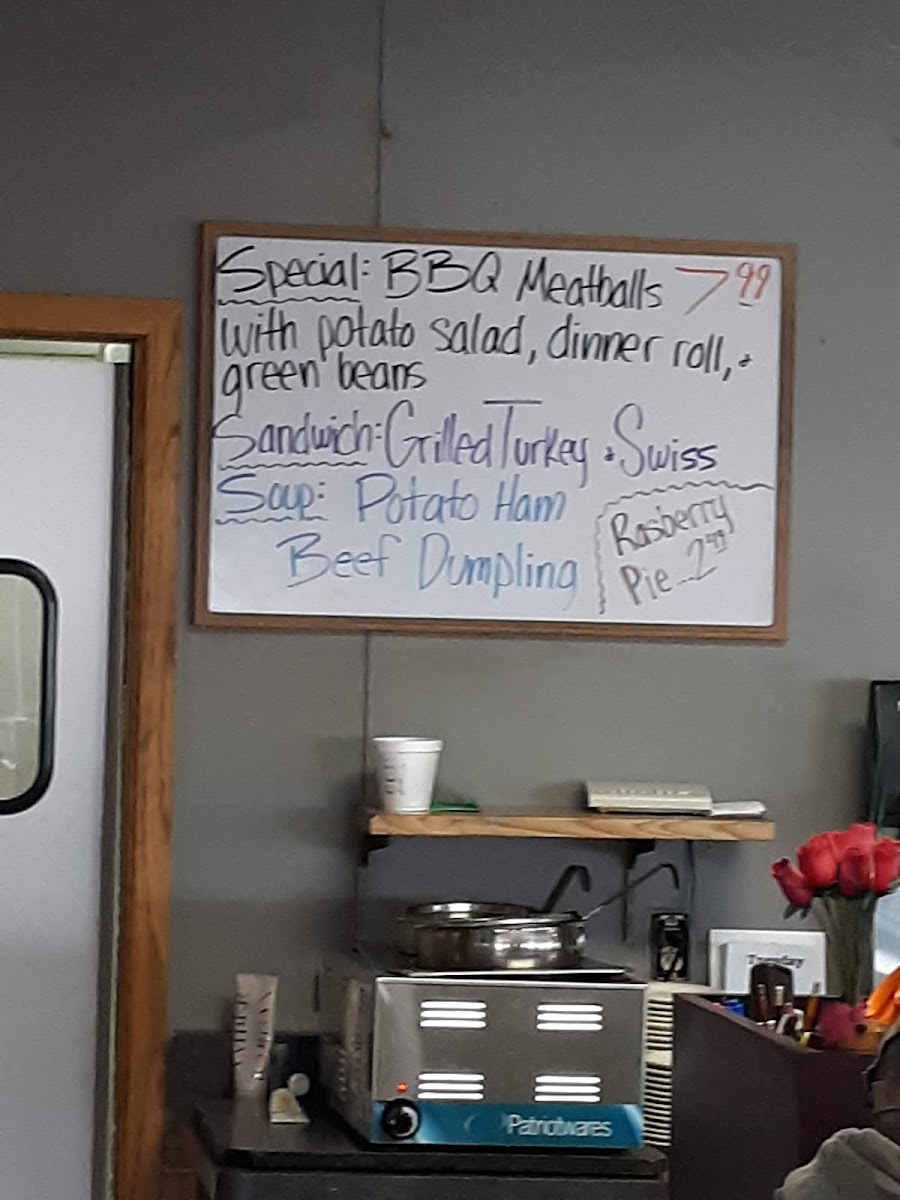 Special: BBQ Meatballs 7 99
with potato salad, dinner roll, +
green beans
Sandwich: Grilled Turkey + Swiss
Soup: Potato Ham
Beef Dumpling
Rasberry
Pie...2 49
Tuesday
Patriotwares